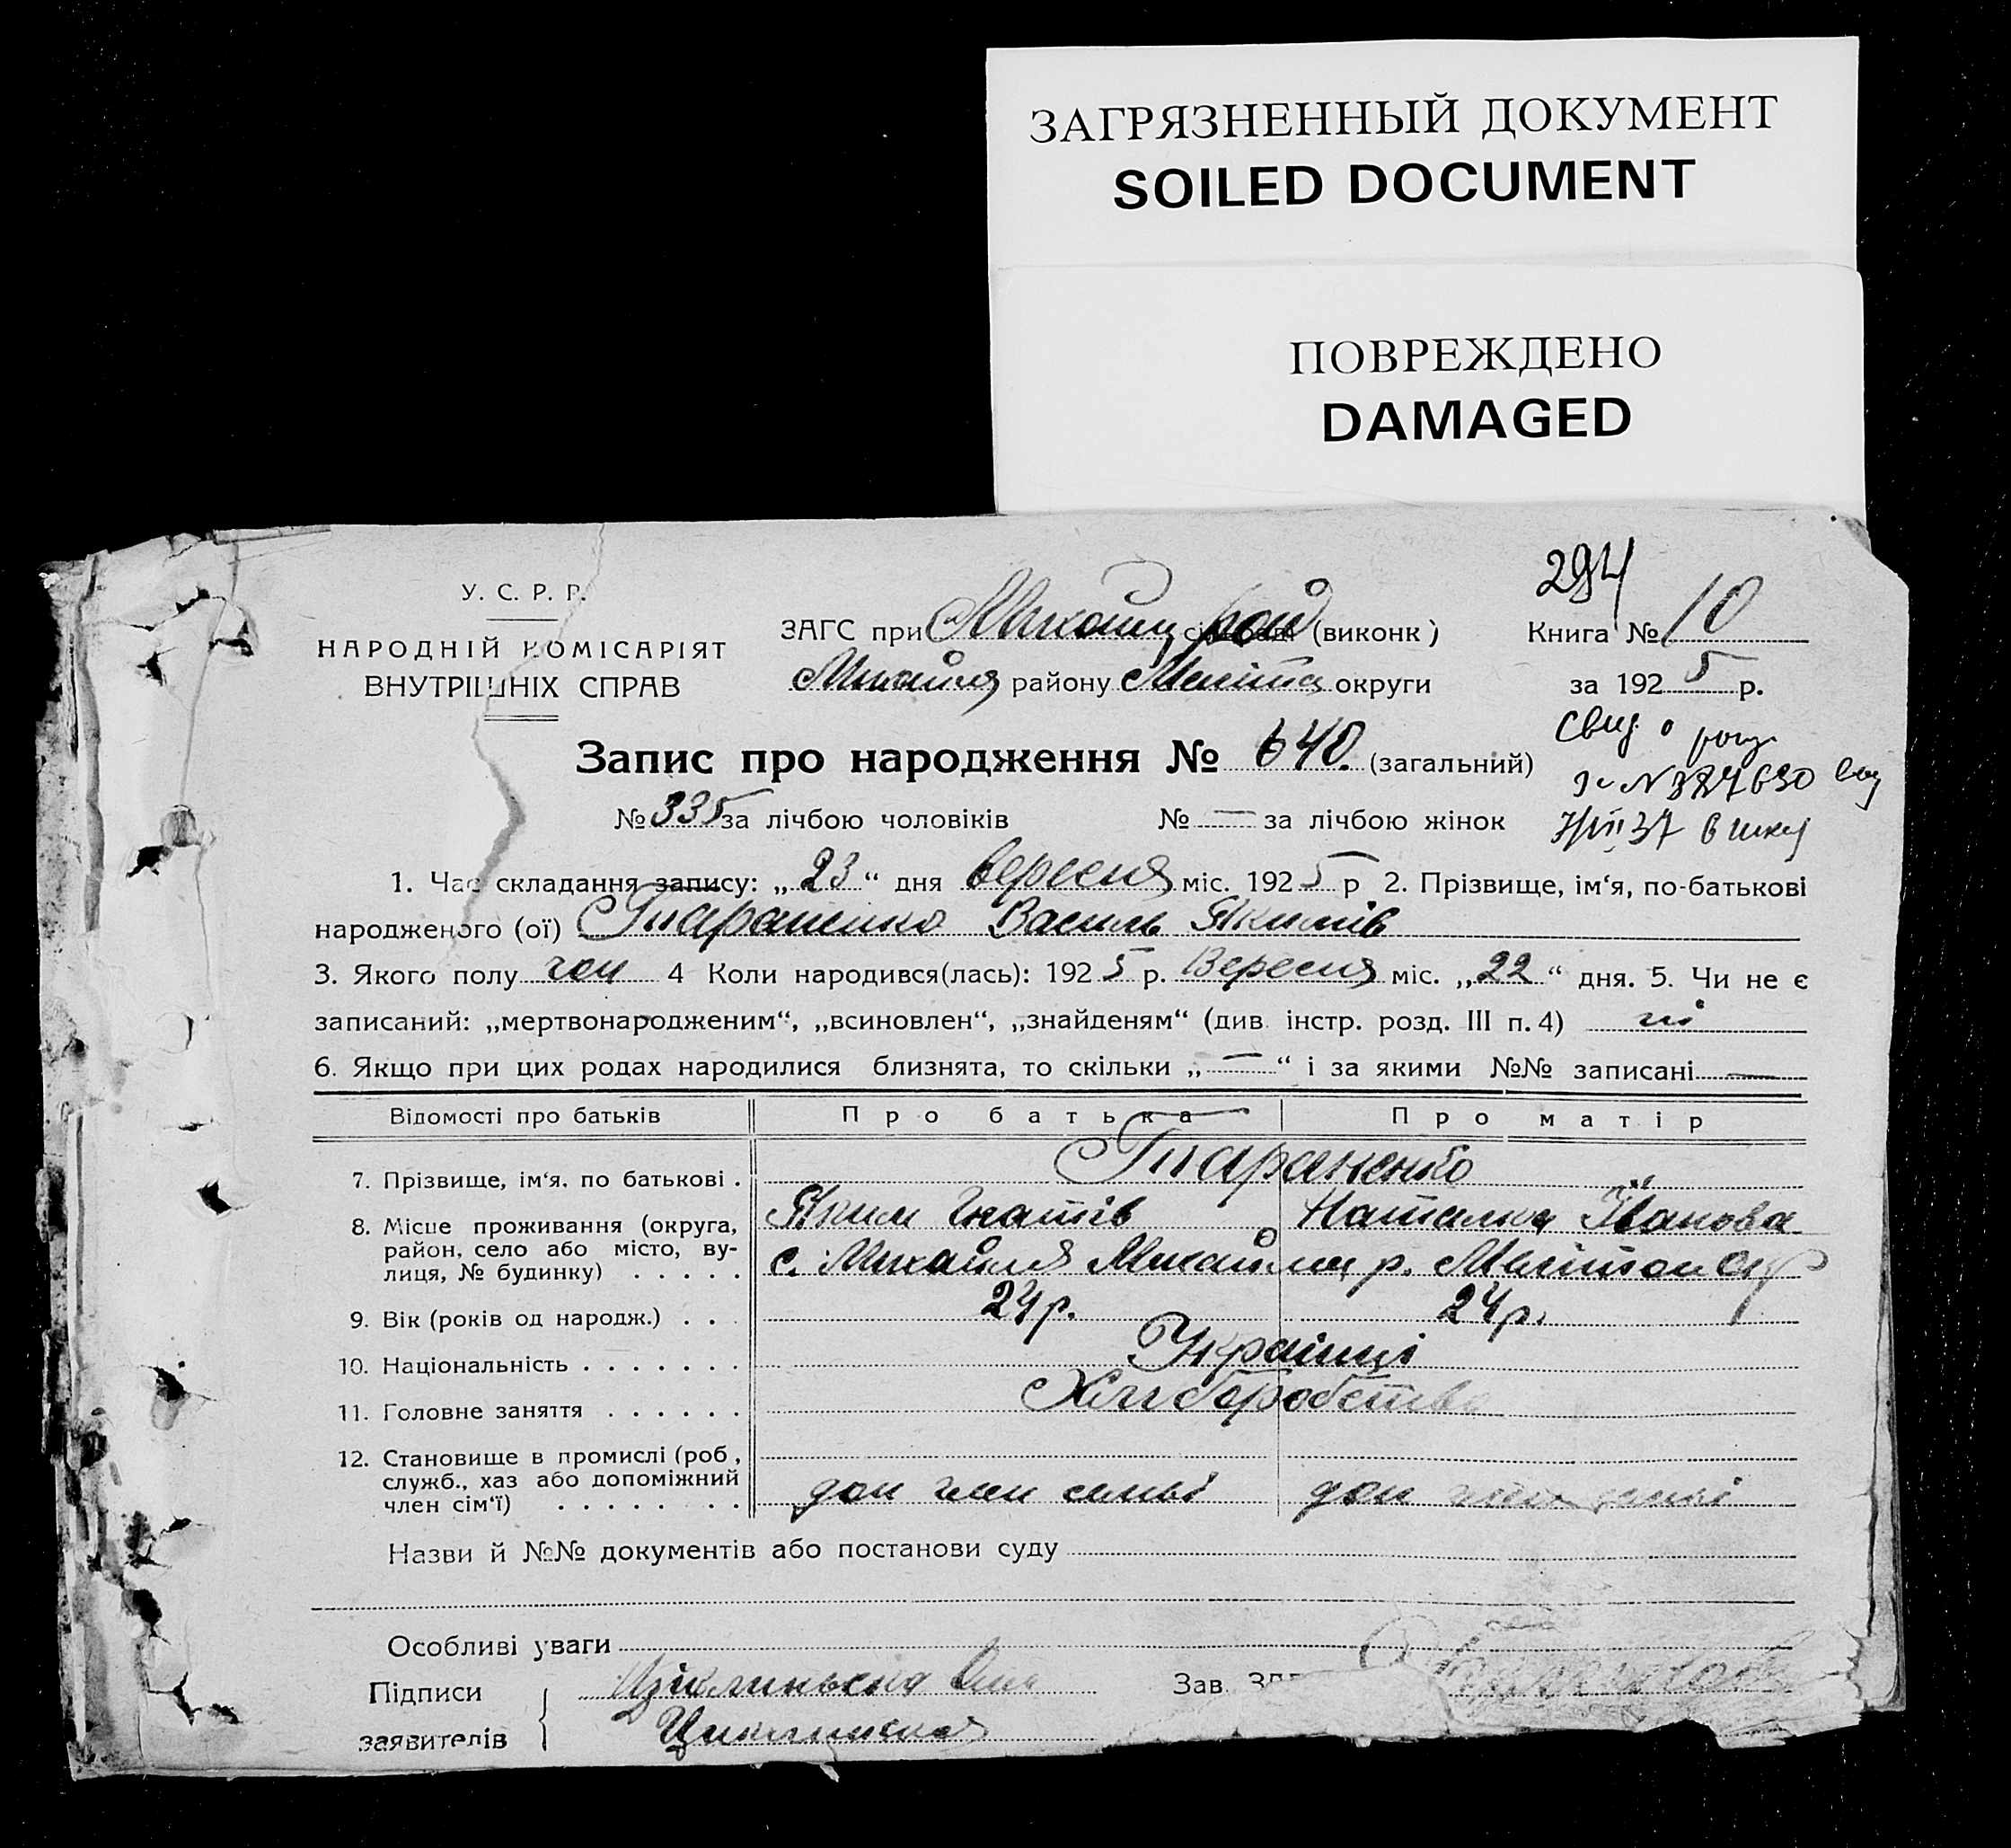 ЗАГРЯЗНЕННЫЙ ДОКУМЕНТ
SOILED DOCUMENT
ПОВРЕЖДЕНО
DAMAGED
294
У. С. Р. Р.
НАРОДНІЙ КОМІСАРІЯТ
ВНУТРІШНІХ СПРАВ
ЗАГС при рай (виконк) Книга № 10
району округи за 1925 р.
Свид. о рожд.
Запис про народження № 640. (загальний)
№ 335 за лічбою чоловіків № — за лічбою жінок
1. Час складання запису: „23“ дня вересня міс. 1925 р 2. Прізвище, ім‘я, по-батькові
народженого (ої) Тараненко Василь Якимів
3. Якого полу чол 4 Коли народився(лась): 1925 р. Вересня міс. „22“ дня. 5. Чи не є
записаний: „мертвонародженим“, „всиновлен“, „знайденям“ (див. інстр. розд. III п. 4) ні
6. Якщо при цих родах народилися близнята, то скільки „—“ і за якими №№ записані —
Відомості про батьків Про батька Про матір
7. Прізвище, ім‘я. по батькові . Тараненко
Яким Гнатів Наталка Іванова
8. Місце проживання (округа,
район, село або місто, ву-
лиця, № будинку) . . . . . с. р.
9. Вік (років од народж.) . . . 24 р. 24 р.
10. Національність . . . . . . . Українці
11. Головне заняття . . . . . . Хліборобство
12. Становище в промислі (роб,
служб., хаз або допоміжний
член сім‘ї) . . . . . . . доп член семьі доп член семьі
Назви й №№ документів або постанови суду
Особливі уваги
Підписи Зав.
заявителів